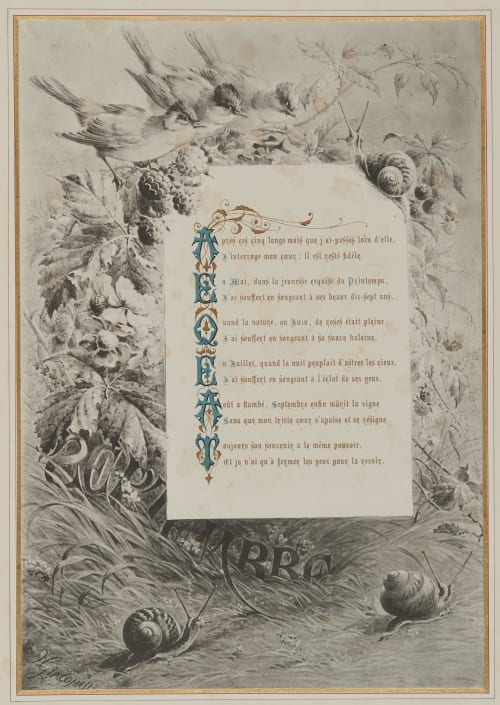 Après ces cinq longs mois que j'ai passés loin d'elle,
J'interroge mon cœur ; il est resté fidèle.
En Mai, dans la jeunesse exquise du Printemps,
J'ai souffert en songeant à ses beaux dix-sept ans.
Quand la nature, en Juin, de roses était pleine
J'ai souffert en songeant à sa suave haleine.
En Juillet, quand la nuit peuplait d'astres les cieux,
J'ai souffert en songeant à l'éclat de ses yeux.
Août a flambé, Septembre enfin mûrit la vigne
Sans que mon triste cœur s'apaise et se résigne.
Toujours son souvenir a le même pouvoir,
Et je n'ai qu'à fermer les yeux pour la revoir.
H Giacomelli